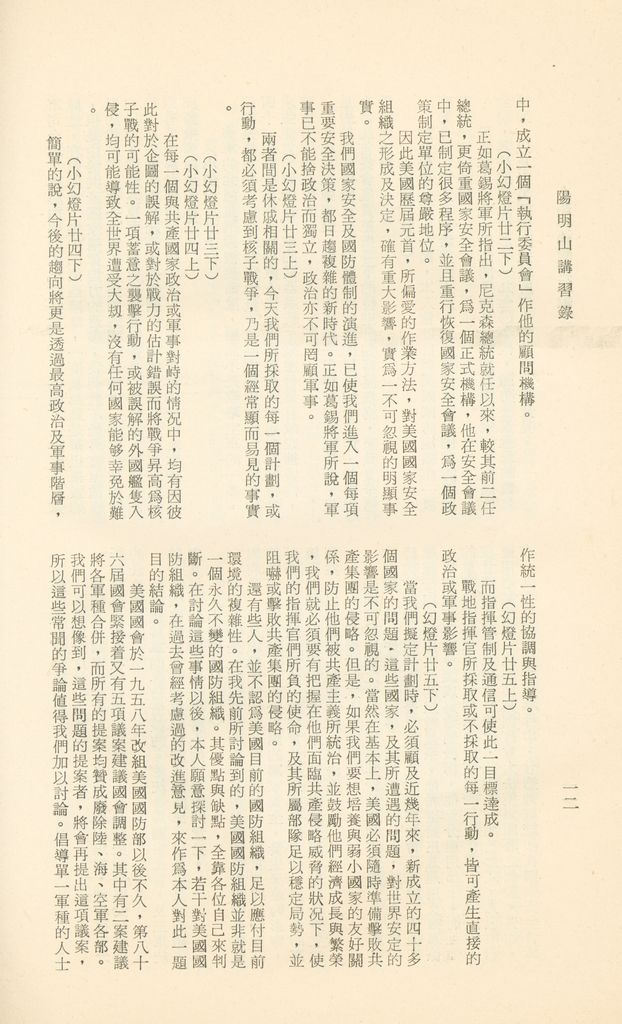 陽明山講習錄
一二
中，成立一個「執行委員會」作他的顧問機構。
（小幻燈片廿二下）
正如葛錫將軍所指出，尼克森總統就任以來，較其前二任
總統，更倚重國家安全會議，爲一個正式機構，他在安全會議
中，已制定很多程序，並且重行恢復國家安全會議，爲一個政
策制定單位的尊嚴地位。
因此美國歷屆元首，所偏愛的作業方法，對美國國家安全
組織之形成及決定，確有重大影響，實爲一不可忽視的明顯事
實。
我們國家安全及國防體制的演進，已使我們進入一個每項
重要安全決策，都日趨複雜的新時代。正如葛錫將軍所說，軍
事已不能捨政治而獨立，政治亦不可罔顧軍事。
（小幻燈片廿三上）
兩者間是休戚相關的，今天我們所採取的每一個計劃，或
行動，都必須考慮到核子戰爭，乃是一個經常顯而易見的事實
。
（小幻燈片廿三下）
（小幻燈片廿四上）
在每一個與共產國家政治或軍事對峙的情況中，均有因彼
此對於企圖的誤解，或對於戰力的估計錯誤而將戰爭昇高爲核
子戰的可能性。一項蓄意之襲擊行動，或被誤解的外國艦隻入
侵，均可能導致全世界遭受大刼，沒有任何國家能够幸免於難
。
（小幻燈片廿四下）
簡單的說，今後的趨向將更是透過最高政治及軍事階層，
作統一性的協調與指導。
（幻燈片廿五上）
而指揮管制及通信可使此一目標達成。
戰地指揮官所採取或不採取的每一行動，皆可產生直接的
政治或軍事影響。
（幻燈片廿五下）
當我們擬定計劃時，必須顧及近幾年來，新成立的四十多
個國家的問題。這些國家，及其所遭遇的問題，對世界安定的
影響是不可忽視的。當然在基本上，美國必須隨時準備擊敗共
產集團的侵略。但是，如果我們要想培養與弱小國家的友好關
係，防止他們被共產主義所統治，並鼓勵他們經濟成長與繁榮
，我們就必須要有把握在他們面臨共產侵略威脅的狀況下，使
我們的指揮官們所負的使命，及其所屬部隊足以穩定局勢，並
阻嚇或擊敗共產集團的侵略。
還有些人，並不認爲美國目前的國防組織，足以應付目前
環境的複雜性。在我先前所討論到的，美國國防組織並非就是
一個永久不變的國防組織。其優點與缺點，全靠各位自己來判
斷。在討論這些事情以後，本人願意探討一下，若干對美國國
防組織，在過去曾經考慮過的改進意見，來作爲本人對此一題
目的結論。
美國國會於一九五八年改組美國國防部以後不久，第八十
六屆國會緊接着又有五項議案建議國會調整。其中有二案建議
將各軍種合併，而所有的提案均贊成廢除陸、海、空軍各部。
我們可以想像到，這些問題的提案者，將會再提出這項議案，
所以這些常聞的爭論值得我們加以討論。倡導單一軍種的人士